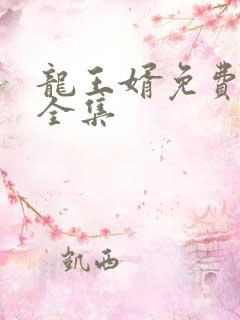 龍王婿免費
全集
凱西